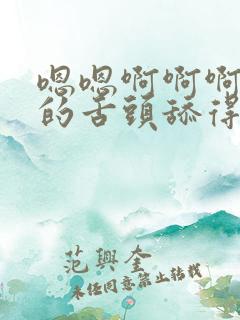 嗯嗯啊啊啊
的舌頭舔得
范興奎
未经同意禁止转载